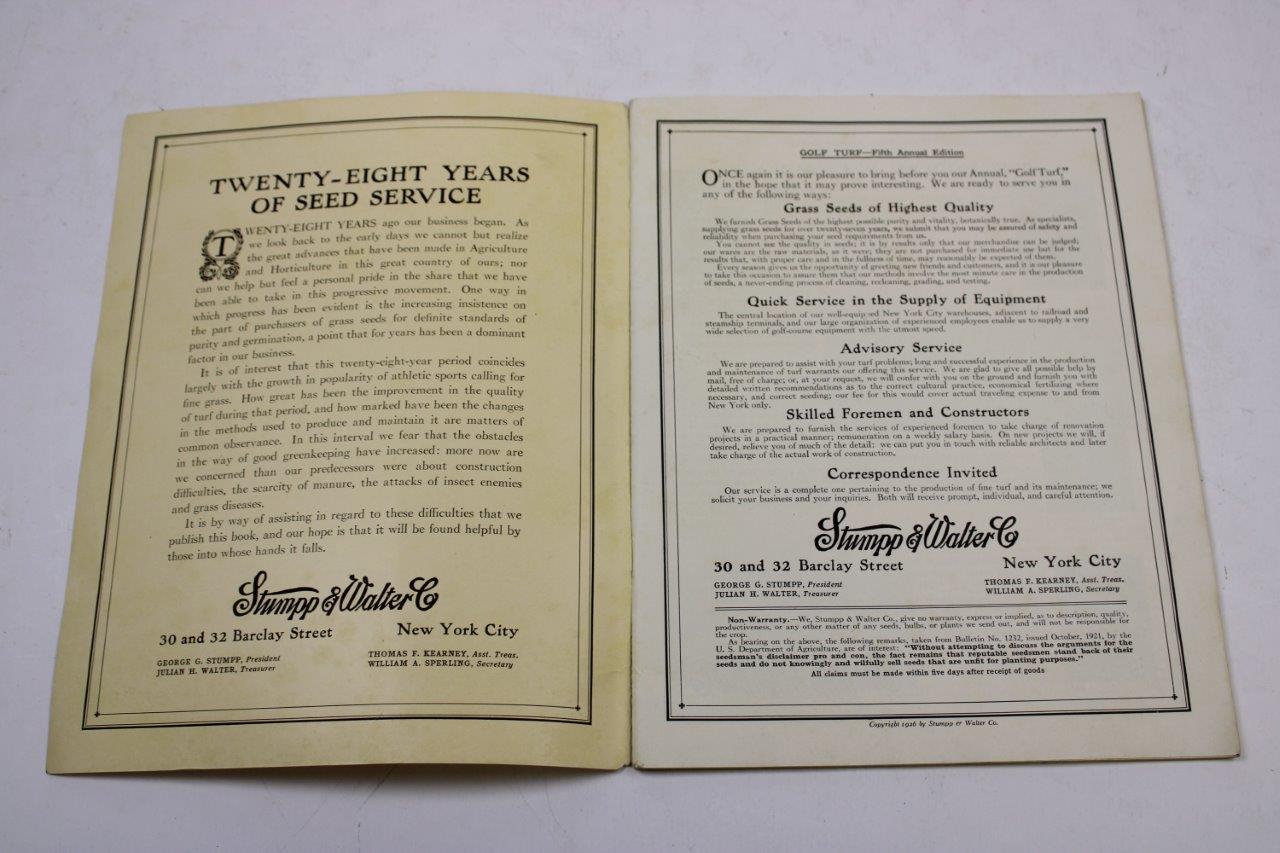 TWENTY-EIGHT YEARS
OF SEED SERVICE
TWENTY-EIGHT YEARS ago our business began. As
we look back to the early days we cannot but realize
the great advances that have been made in Agriculture
and Horticulture in this great country of ours; nor
can we help but feel a personal pride in the share that we have
been able to take in this progressive movement. One way in
which progress has been evident is the increasing insistence on
the part of purchasers of grass seeds for definite standards of
purity and germination, a point that for years has been a dominant
factor in our business.
It is of interest that this twenty-eight-year period coincides
largely with the growth in popularity of athletic sports calling for
fine grass. How great has been the improvement in the quality
of turf during that period, and how marked have been the changes
in the methods used to produce and maintain it are matters of
common observance. In this interval we fear that the obstacles
in the way of good greenkeeping have increased: more now are
we concerned than our predecessors were about construction
difficulties, the scarcity of manure, the attacks of insect enemies
and grass diseases.
It is by way of assisting in regard to these difficulties that we
publish this book, and our hope is that it will be found helpful by
those into whose hands it falls.
Stumpp & Walter Co
30 and 32 Barclay Street New York City
GEORGE G. STUMPP, President THOMAS F. KEARNEY, Asst. Treas.
JULIAN H. WALTER, Treasurer WILLIAM A. SPERLING, Secretary
GOLF TURF—Fifth Annual Edition
ONCE again it is our pleasure to bring before you our Annual, "Golf Turf,"
in the hope that it may prove interesting. We are ready to serve you in
any of the following ways:
Grass Seeds of Highest Quality
We furnish Grass Seeds of the highest possible purity and vitality, botanically true. As specialists,
supplying grass seeds for over twenty-seven years, we submit that you may be assured of safety and
reliability when purchasing your seed requirements from us.
You cannot see the quality in seeds; it is by results only that our merchandise can be judged;
our wares are the raw materials, as it were; they are not purchased for immediate use but for the
results that, with proper care and in the fullness of time, may reasonably be expected of them.
Every season gives us the opportunity of greeting new friends and customers, and it is our pleasure
to take this occasion to assure them that our methods involve the most minute care in the production
of seeds, a never-ending process of cleaning, recleaning, grading, and testing.
Quick Service in the Supply of Equipment
The central location of our well-equipped New York City warehouses, adjacent to railroad and
steamship terminals, and our large organization of experienced employees enable us to supply a very
wide selection of golf-course equipment with the utmost speed.
Advisory Service
We are prepared to assist with your turf problems; long and successful experience in the production
and maintenance of turf warrants our offering this service. We are glad to give all possible help by
mail, free of charge; or, at your request, we will confer with you on the ground and furnish you with
detailed written recommendations as to the correct cultural practice, economical fertilizing where
necessary, and correct seeding; our fee for this would cover actual traveling expense to and from
New York only.
Skilled Foremen and Constructors
We are prepared to furnish the services of experienced foremen to take charge of renovation
projects in a practical manner; remuneration on a weekly salary basis. On new projects we will, if
desired, relieve you of much of the detail: we can put you in touch with reliable architects and later
take charge of the actual work of construction.
Correspondence Invited
Our service is a complete one pertaining to the production of fine turf and its maintenance; we
solicit your business and your inquiries. Both will receive prompt, individual, and careful attention.
Stumpp & Walter Co
30 and 32 Barclay Street New York City
GEORGE G. STUMPP, President THOMAS F. KEARNEY, Asst. Treas.
JULIAN H. WALTER, Treasurer WILLIAM A. SPERLING, Secretary
Non-Warranty.—We, Stumpp & Walter Co., give no warranty, express or implied, as to description, quality,
productiveness, or any other matter of any seeds, bulbs, or plants we send out, and will not be responsible for
the crop.
As bearing on the above, the following remarks, taken from Bulletin No. 1232, issued October, 1921, by the
U. S. Department of Agriculture, are of interest: "Without attempting to discuss the arguments for the
seedsman's disclaimer pro and con, the fact remains that reputable seedsmen stand back of their
seeds and do not knowingly and wilfully sell seeds that are unfit for planting purposes."
All claims must be made within five days after receipt of goods
Copyright 1926 by Stumpp & Walter Co.